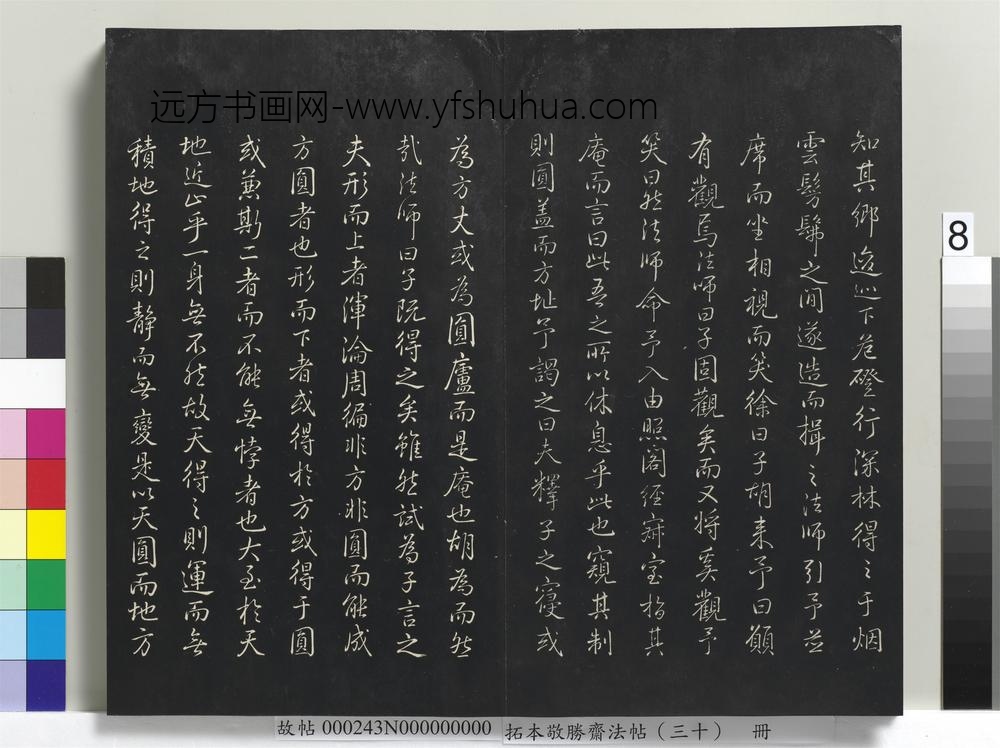 远方书画网-www.yfshuhua.com
知其鄉逡巡下危磴行深林得之于烟
雲髣髴之間遂造而揖之法師引予並
席而坐相視而笑徐曰子胡來予曰願
有觀焉法師曰子固觀矣而又將奚觀予
笑曰然法師命予入由照閣經寂室指其
庵而言曰此吾之所以休息乎此也窺其制
則圓蓋而方址予謁之曰夫釋子之寢或
為方丈或為圓廬而是庵也胡為而然
哉法師曰子既得之矣雖然試為子言之
夫形而上者渾淪周徧非方非圓而能成
方圓者也形而下者或得於方或得于圓
或兼斯二者而不能無悖者也大至於天
地近止乎一身無不然故天得之則運而無
積地得之則靜而無變是以天圓而地方
8
故帖 000243N000000000 拓本敬勝齋法帖（三十） 冊